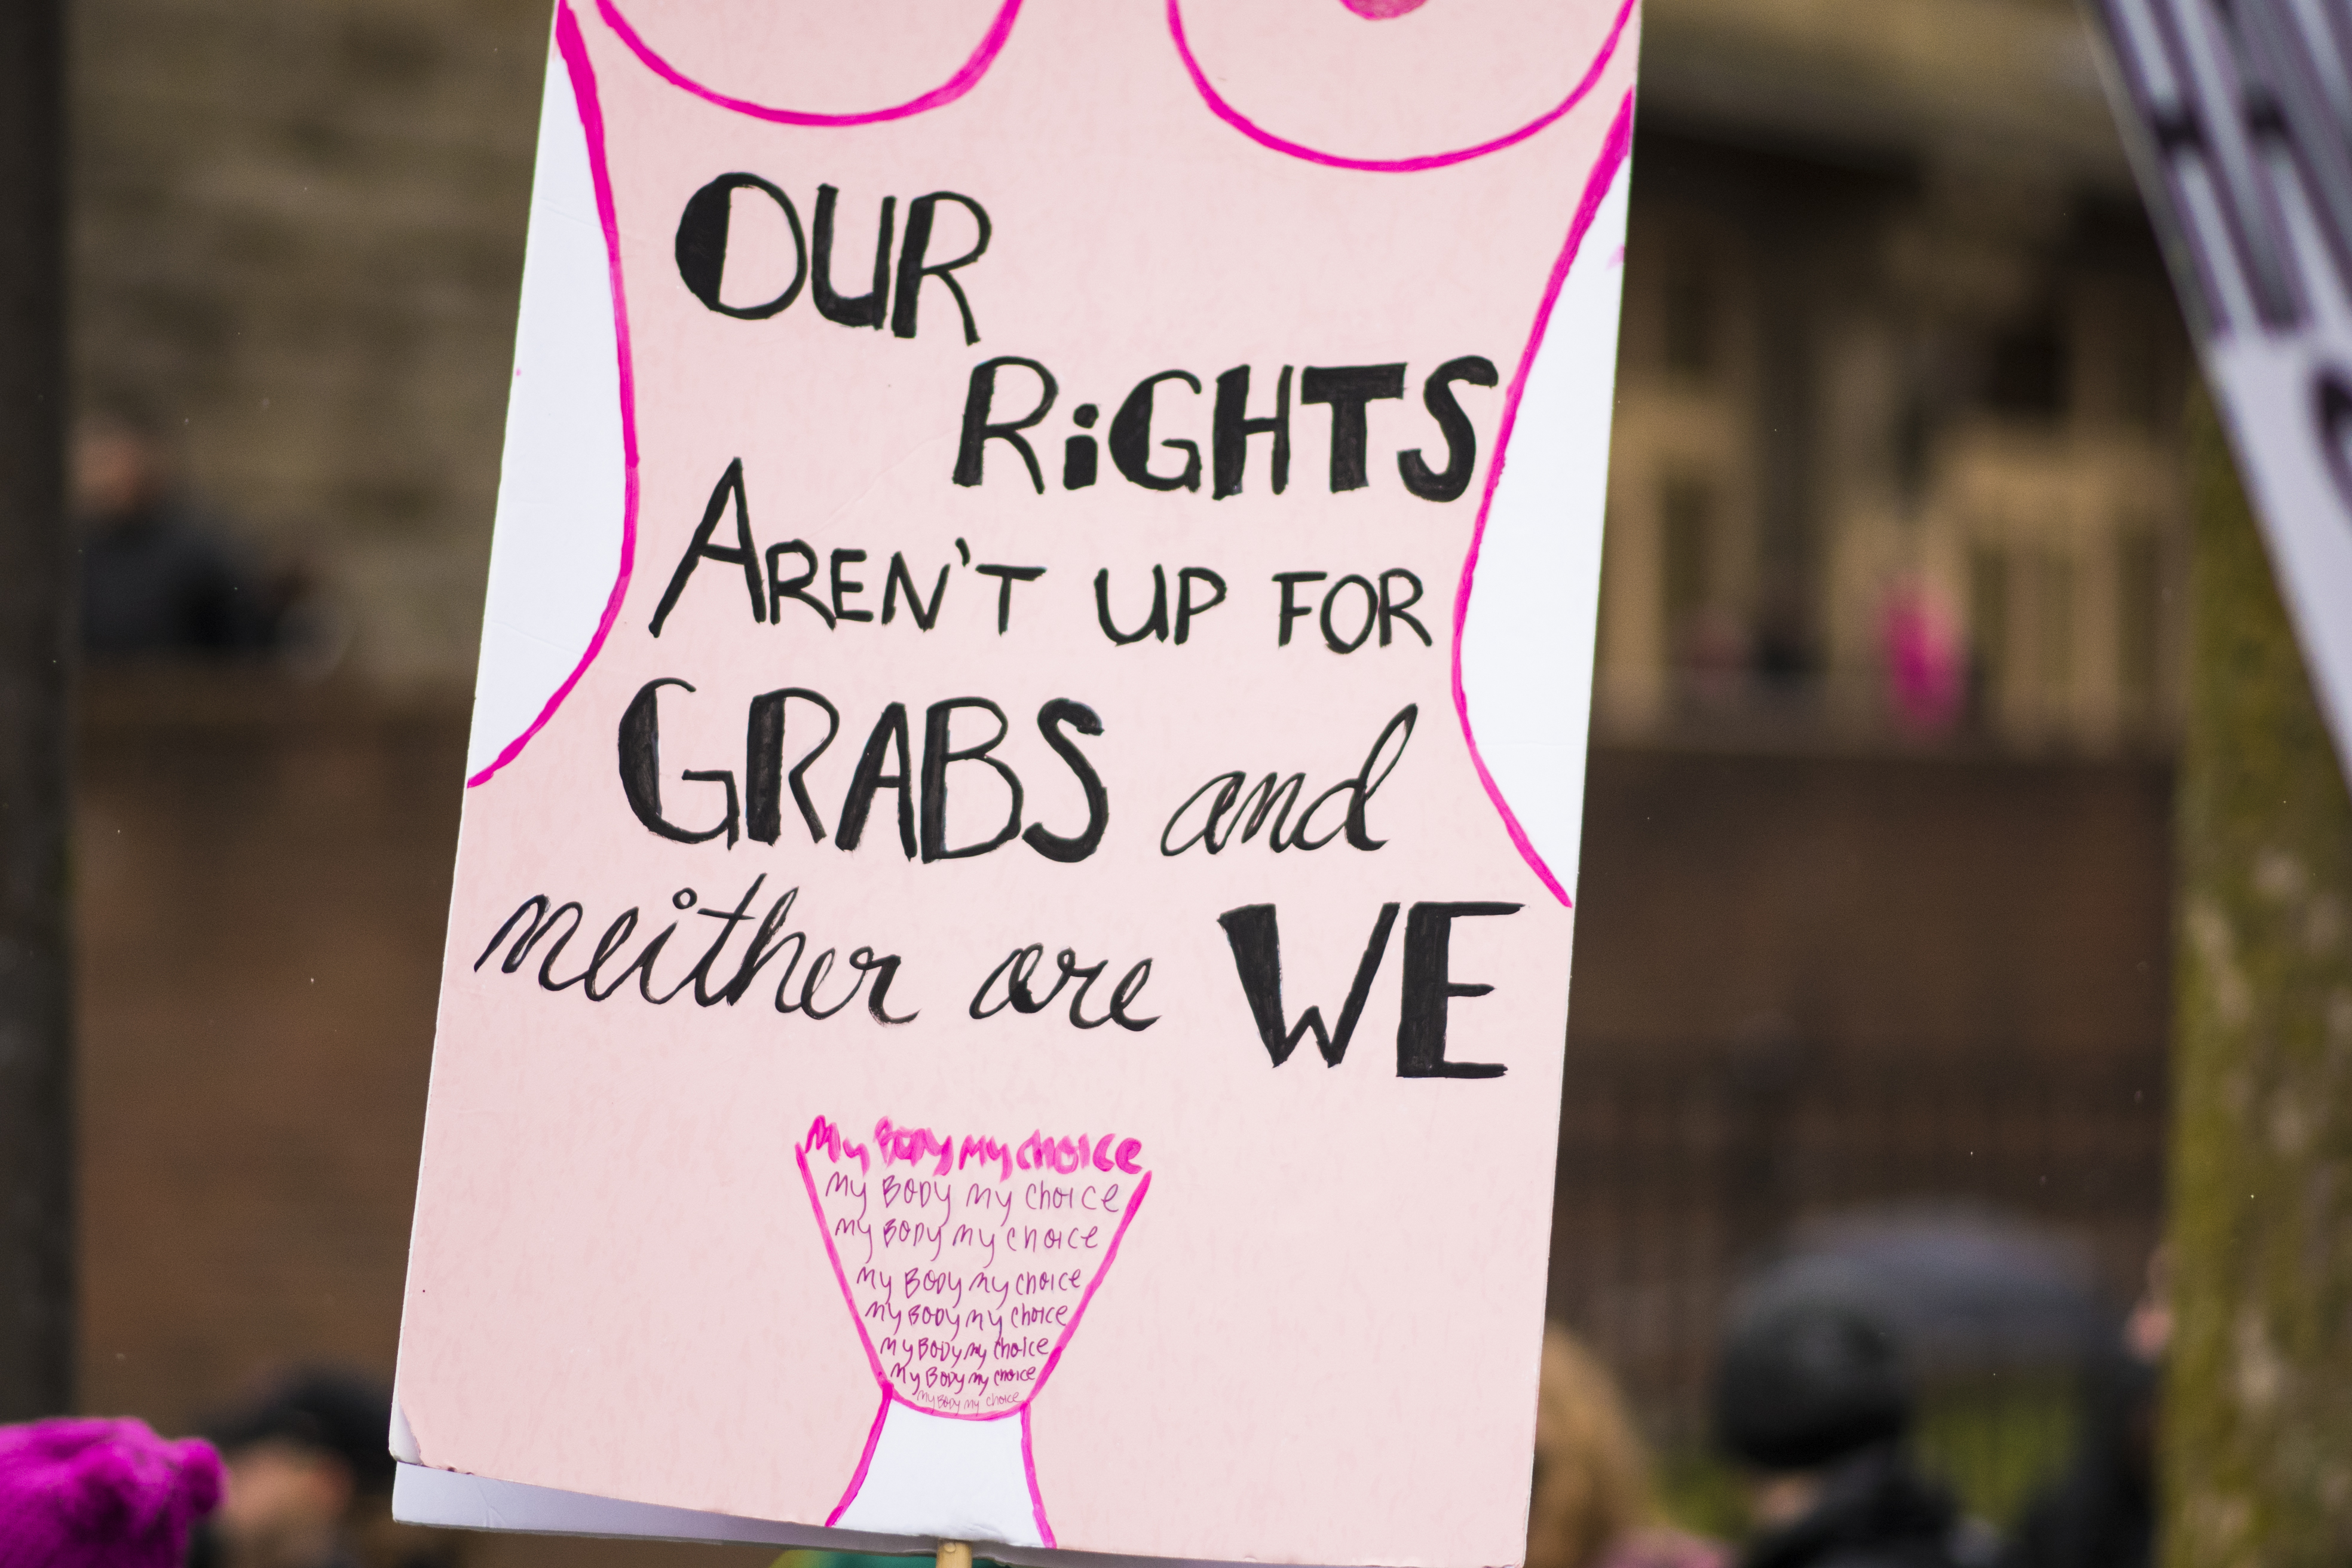 OUR
RiGHTS
AREN'T UP FOR
GRABS and
neither are WE
My BODy My CHOICE
My BODy My CHOICE
My BODy My CHOICE
My BODy My CHOICE
My BODy My CHOICE
My BODy My CHOICE
My BODy My CHOICE
My BODy My CHOICE